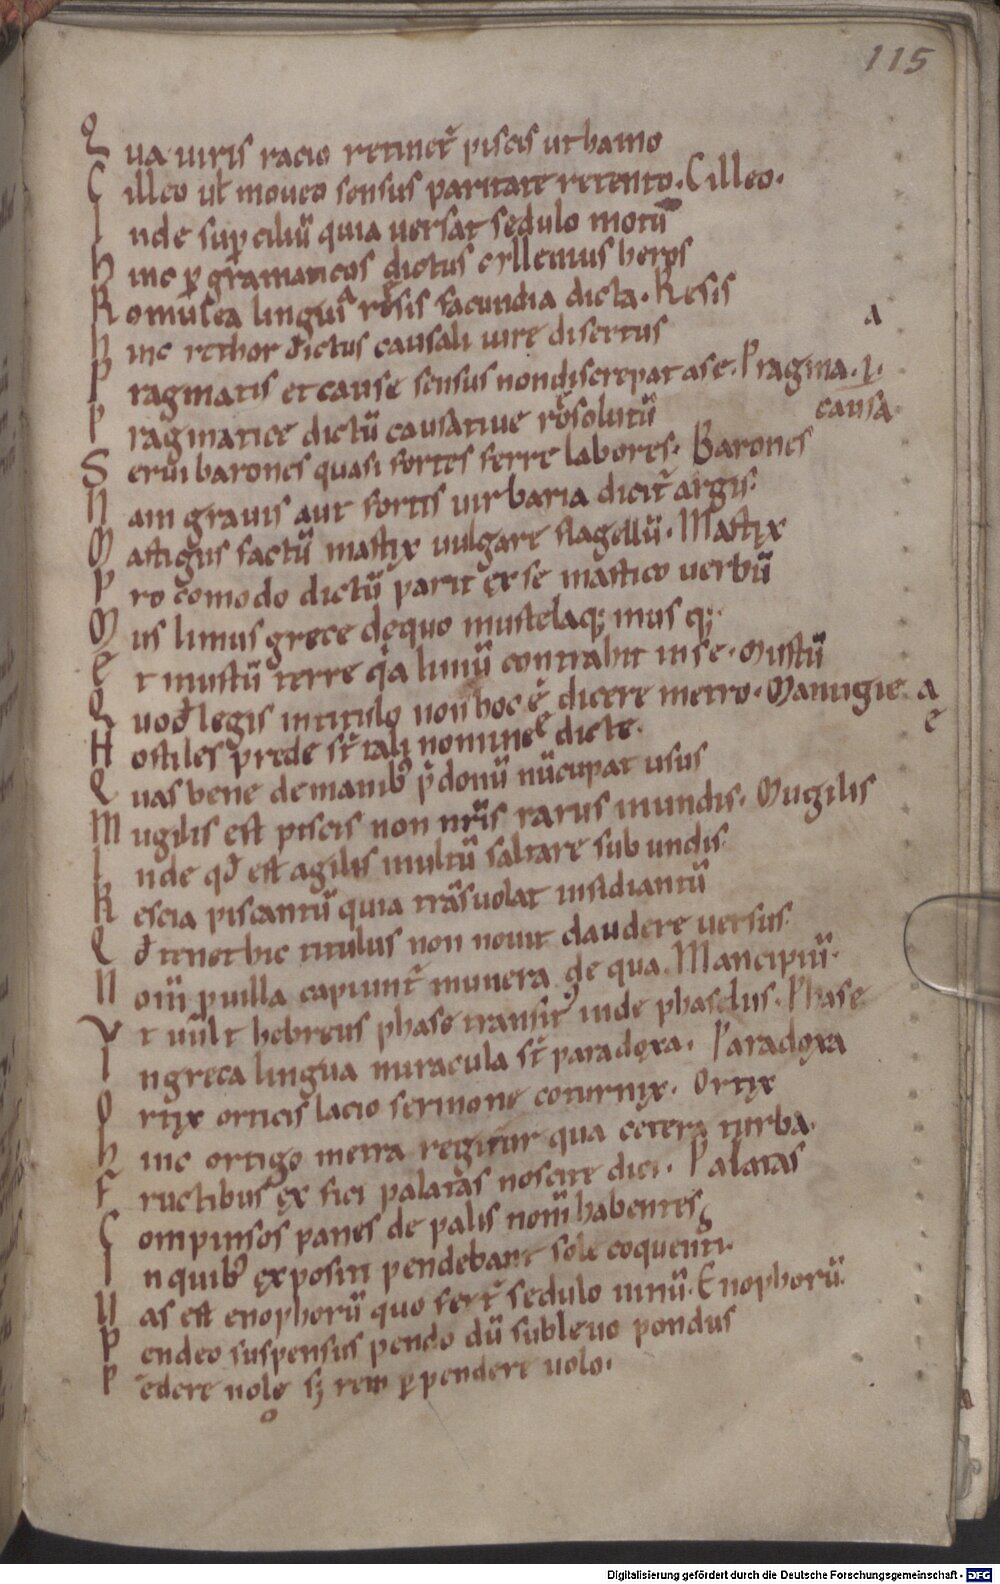 115
Qua uiris racio retinet̃ piscis ut hamo
Cilleo uł moueo sensus paritate retento. Cilleo.
Inde sup̱ciliū quia uersat sedulo motū
Hinc p̱ gramaticos dictus cyllenius heros
Romulea lingua resis facundia dicta. Resis
hinc rethor dictus causali iure disertus
Pragmatis et cause sensus non discrepat a se. Pragma. i.
Pragmatice dictū causatiue resolutū causa
Serui barones quasi fortes ferre labores. Barones
Nam grauis aut fortis uir baria dicit̃ argis.
Mastigus factū mastix uulgare flagellū. Mastix
Pro comodo dictū parit ex se mastico uerbū
Mus limus grece de quo mustelaq; mus q;
Et mustū terre q̃a limū contrahit in se. Mustū
Quod legis in titulo non hoc ē dicere metro. Manugie. a
Hostiles prede st̃ tali nomine dicte. e
Quas bene de manib; p̃donū nūcupat usus
Mugilis est piscis non nr̃is rarus in undis. Mugilis
Inde qđ est agilis multū saltare sub undis.
Rescia piscantū quia trāsuolat insidiantū
Qđ tenet hic titulus non nouit claudere uersus.
Nom̄ p̱ uilla capiunt̃ munera de qua. Mancipiū.
Vt uult hebreus phase transit; inde phaselus. Phase
In greca lingua miracula st̃ paradoxa. Paradoxa
Ortyx orticis lacio sermone coturnyx. Ortyx
hinc ortigo metra regitur qua cetera turba.
Fructibus ex fici palatas noscite dici. Palatas
Compinsos panes de palis nom̄ habentes
In quib; expositi pendebant sole coquenti.
Uas est enophorū quo fert̃ sedulo uinū. Enophorū.
Pendeo suspensus pendo dū subleuo pondus
Pedere nolo sȝ rem p̱pendere uolo.
Digitalisierung gefördert durch die Deutsche Forschungsgemeinschaft - DFG